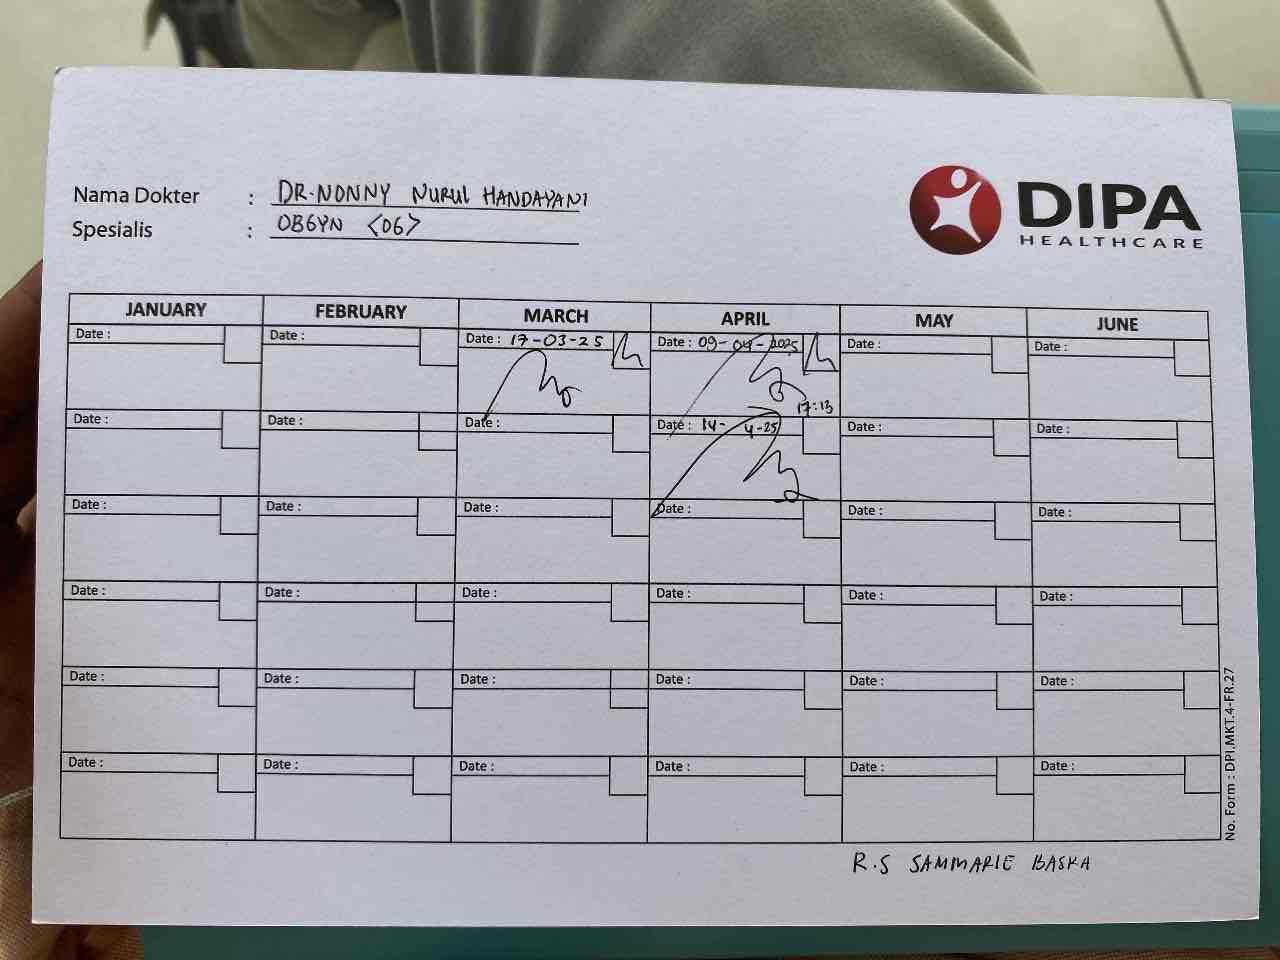 Nama Dokter : DR. NONNY NURUL HANDAYANI
Spesialis : OBGYN <OG>
DIPA
HEALTHCARE
JANUARY FEBRUARY MARCH APRIL MAY JUNE
Date : Date : Date : 17-03-25 Date : 09-04-2025 Date : Date :
17:13
Date : Date : Date : Date : 14-4-25 Date : Date :
Date : Date : Date : Date : Date : Date :
Date : Date : Date : Date : Date : Date :
Date : Date : Date : Date : Date : Date :
Date : Date : Date : Date : Date : Date :
No. Form : DPI.MKT.4-FR.27
R.S SAMMARIE BASRA